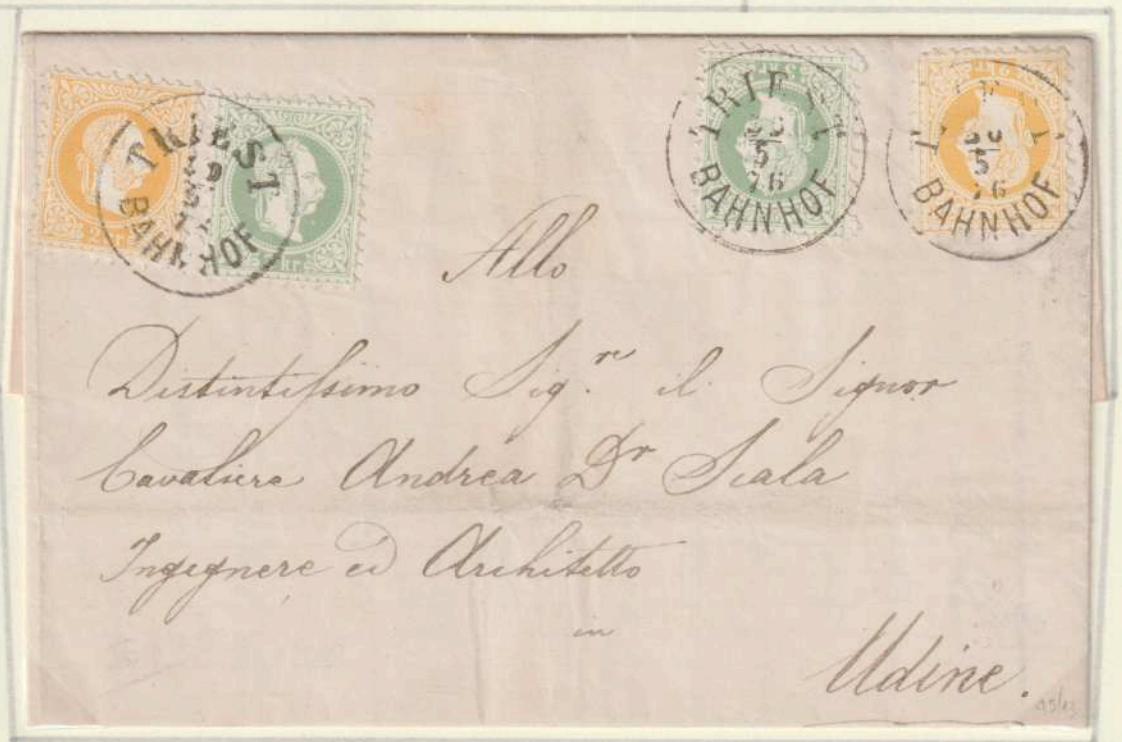 TRIEST
BAHNHOF
TRIEST
30
5
76
BAHNHOF
30
5
76
BAHNHOF
2 Kr.
3 Kr.
Allo
Distintissimo Sig.re il Signor
Cavaliere Andrea Dr Scala
Ingegnere ed Architetto
in
Udine.